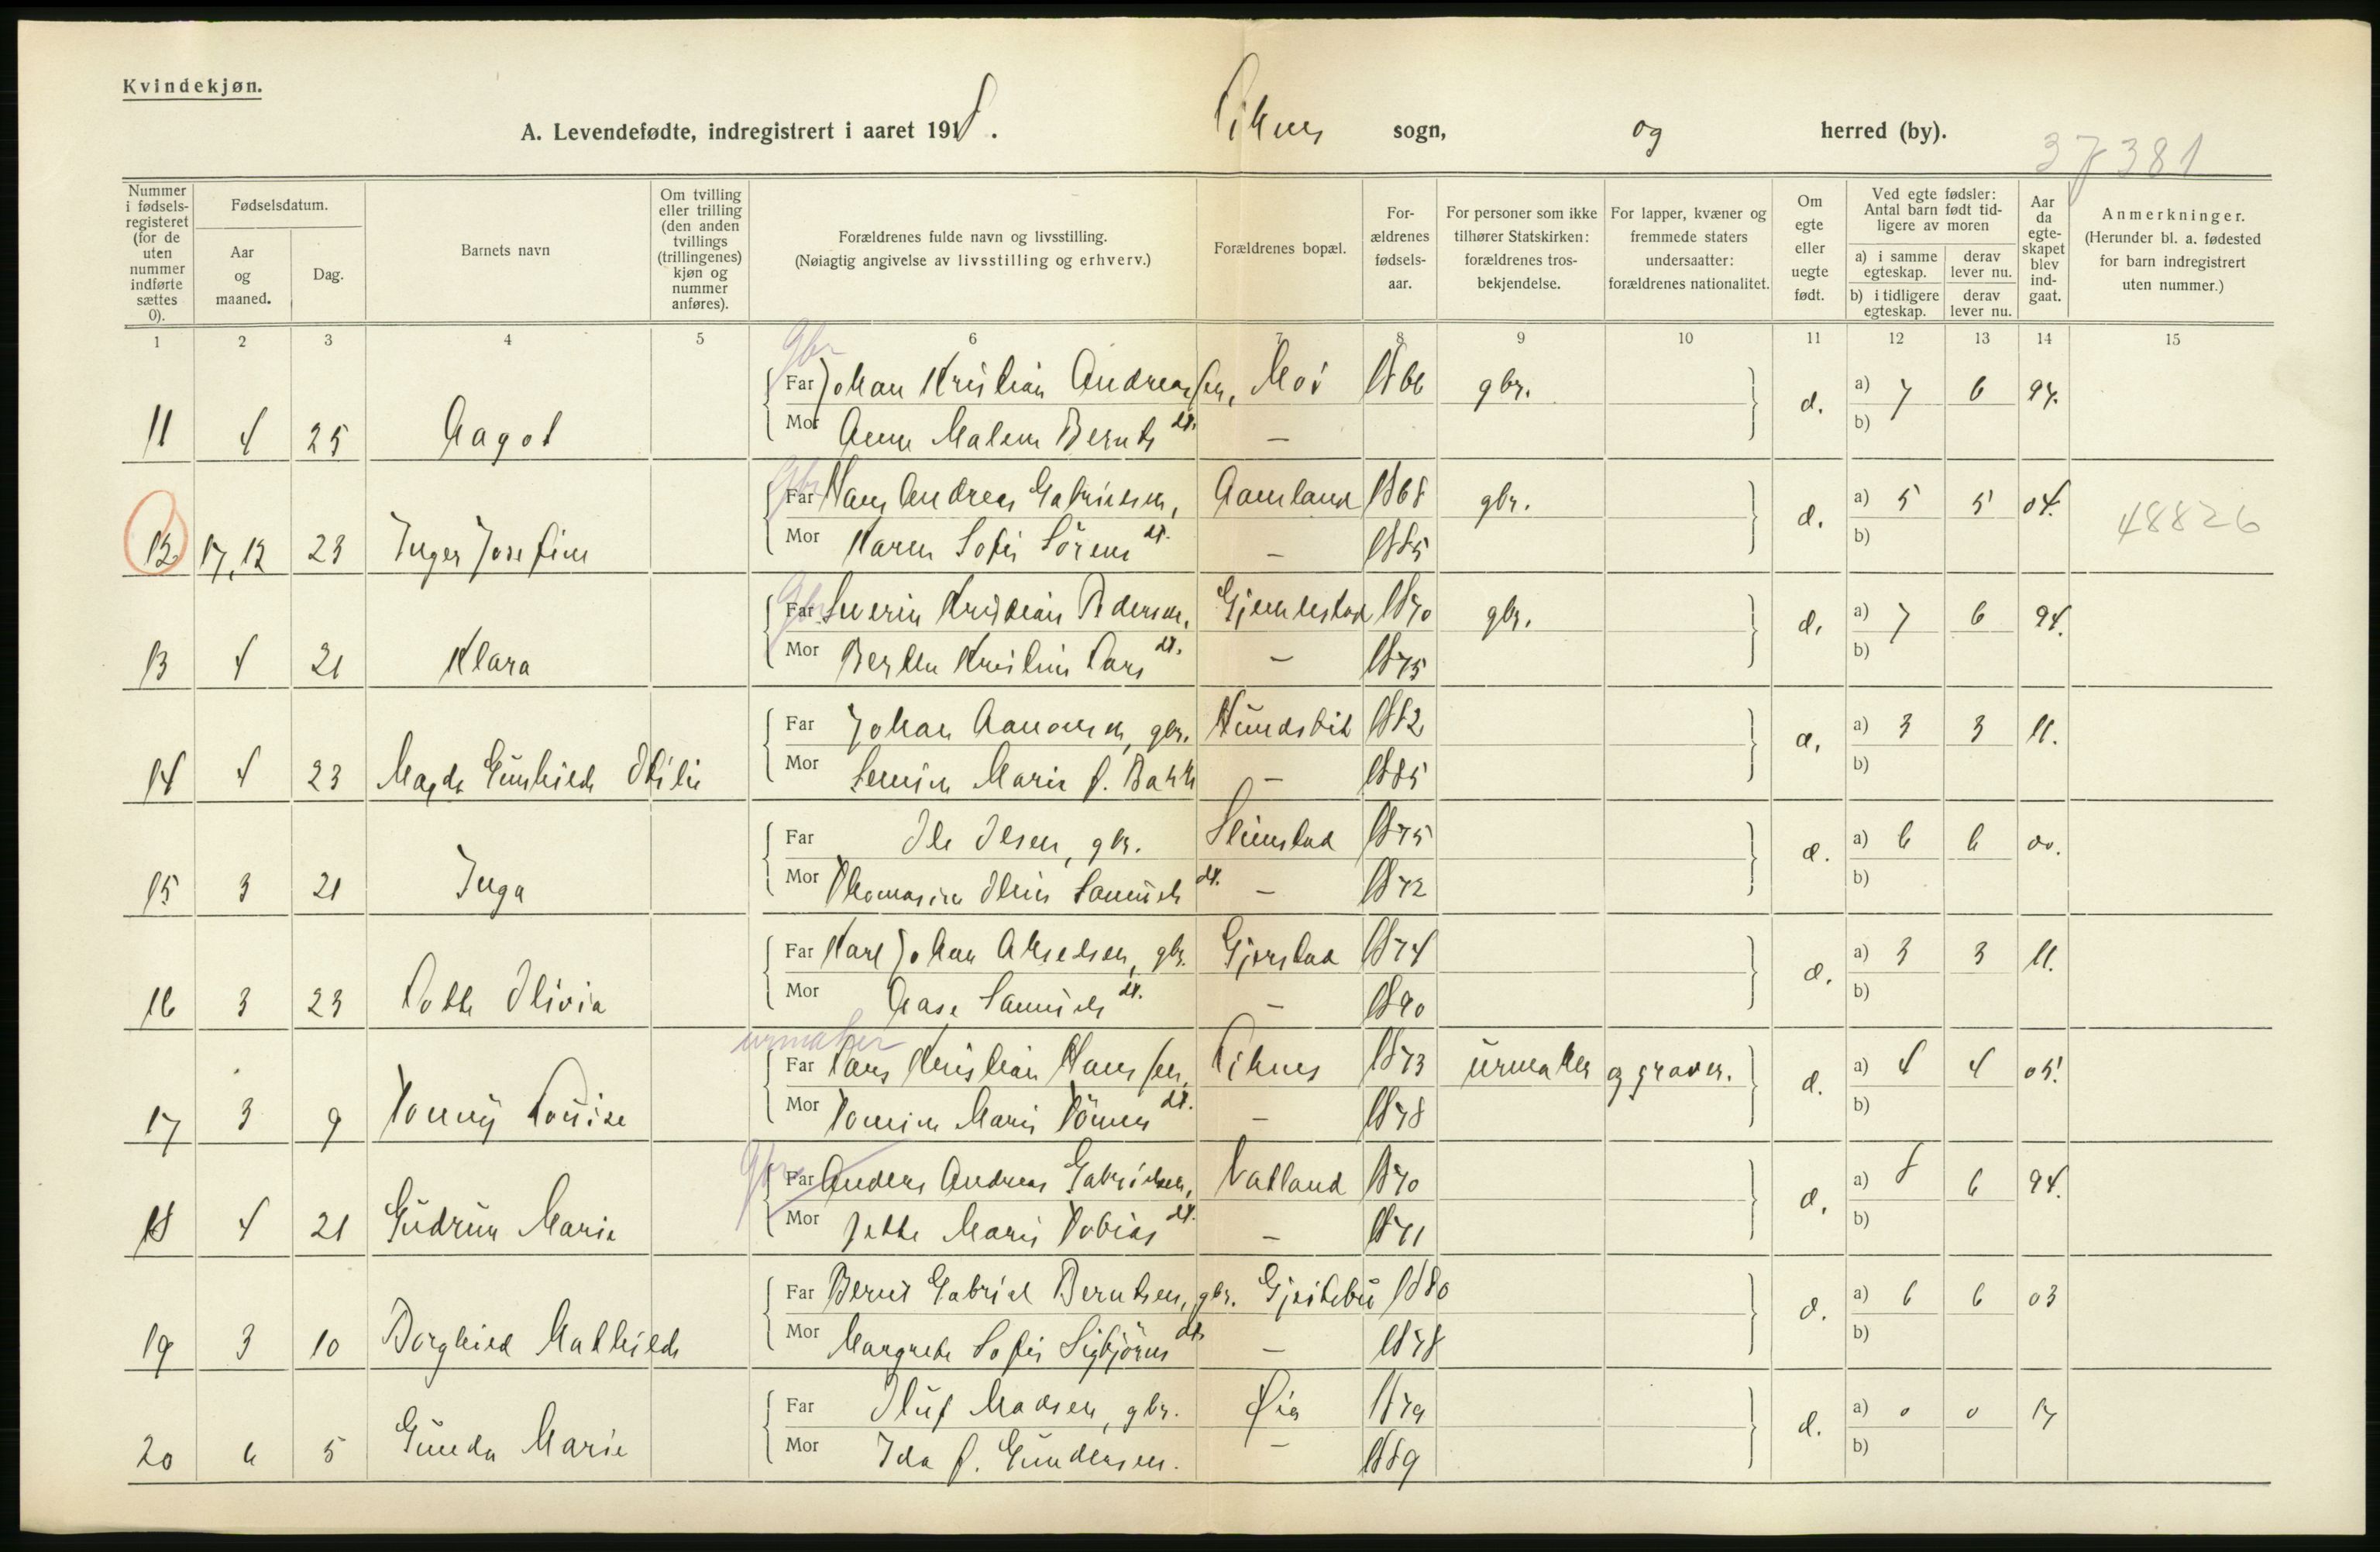 Kvindekjøn.
A. Levendefødte, indregistrert i aaret 1918. sogn, og herred (by).
37381
Nummer i fødsels-registeret (for de uten nummer indførte sættes 0).
Fødselsdatum.
Aar og maaned.
Dag.
Barnets navn
Om tvilling eller trilling (den anden tvillings (trillingenes) kjøn og nummer anføres).
Forældrenes fulde navn og livsstilling.
(Nøiagtig angivelse av livsstilling og erhverv.)
Forældrenes bopæl.
For-ældrenes fødsels-aar.
For personer som ikke tilhører Statskirken: forældrenes tros-bekjendelse.
For lapper, kvæner og fremmede staters undersaatter: forældrenes nationalitet.
Om egte eller uegte født.
Ved egte fødsler: Antal barn født tid-ligere av moren
a) i samme egteskap. derav lever nu.
b) i tidligere egteskap. derav lever nu.
Aar da egte-skapet blev ind-gaat.
Anmerkninger.
(Herunder bl. a. fødested for barn indregistrert uten nummer.)
1 2 3 4 5 6 7 8 9 10 11 12 13 14 15
gbr
Far Johan Kristian Andreassen, Moi 1866 gbr.
11 4 25 Aagot d. a) 7 6 97. b)
Mor Anne Malene Bernts dt. —
gbr
Far Hans Andreas Gabrielsen, Aamland 1868 gbr.
12. 17, 12 23 Inger Josefine d. a) 5 5 04. b) 48826
Mor Karen Sofie Sörens dt. — 1885
gbr
Far Severin Kristian Pedersen, 1870 gbr.
13 4 21 Klara d. a) 7 6 94. b)
Mor Berthe Kristine Lars dt. — 1875
Far Johan Aanonsen, gbr. 1882
14 4 23 Magda Gunhild Otilie d. a) 3 3 11. b)
Mor Marie f. — 1885
Far Ole Olsen, gbr. 1875
15 3 21 Inga d. a) 6 6 00. b)
Mor Thomasine Oline Samuels dt. — 1872
Far Karl Johan Akselsen, gbr. Gjerstad 1874
16 3 23 Lotte Olivia d. a) 3 3 11. b)
Mor Aase Samuels dt. — 1890
urmaker
Far Lars Kristian Hanssen, 1873 urmaker og graver.
17 3 9 Tonny Louise d. a) 4 4 05. b)
Mor Tomine Marie Tönnes dt. — 1878
gbr
Far Anders Andreas Gabrielsen, Vatland 1870
18 4 21 Gudrun Marie d. a) 8 6 94. b)
Mor Jette Marie Tobias dt. — 1871
Far Bernt Gabriel Berntsen, gbr. 1880
19 3 10 Borghild Mathilde d. a) 6 6 03 b)
Mor Margrete Sofie Sigbjörns dt. — 1878
Far Oluf Madsen, gbr. Øia 1879
20 6 5 Gunda Marie d. a) 0 0 17 b)
Mor Ida f. Gundersen. — 1889